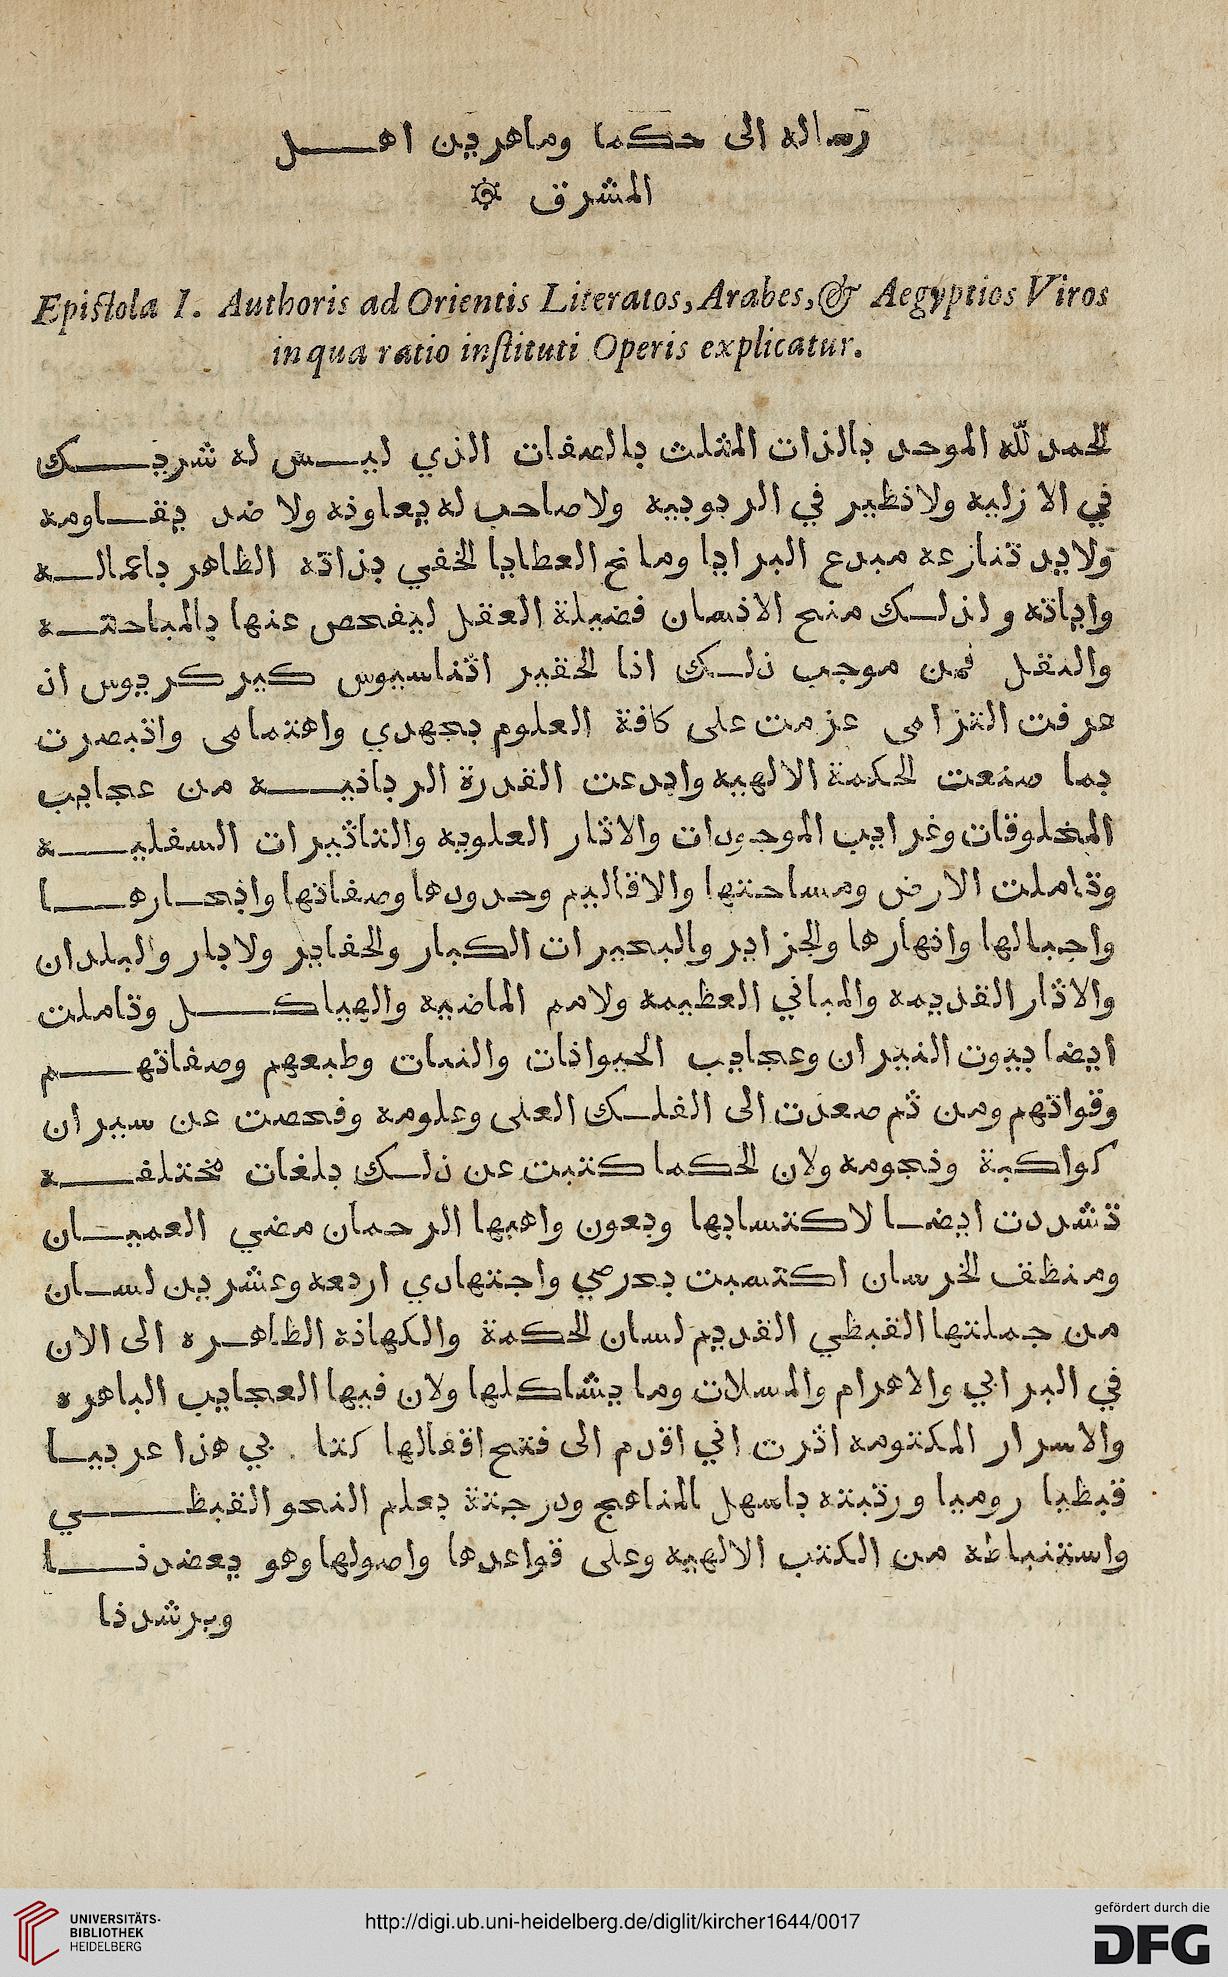 رساله الى حكما وماهرين اهل
المشرق
Epistola I. Authoris ad Orientis Literatos, Arabes, & Aegyptios Viros
in qua ratio instituti Operis explicatur.
الحمد لله الموحد بالذات المثلث بالصفات الذي ليس له شريك
في الازليه ولا نظير في الربوبيه ولا صاحب له يعاونه ولا ضد يقاومه
ولا يد تنازعه مبدع البرايا ومانح العطايا الخفي بذاته الظاهر باعماله
واياته ولذلك منح الانسان فضيلة العقل ليفحص عنها بالمباحثه
والنقل فمن موجب ذلك انا الحقير اثناسيوس كيركريوس اذ
عرفت التزامى عزمت على كافة العلوم بجهدي واهتمامى واتبصرت
بما صنعت الحكمة الالهيه وابدعت القدرة الربانيه من عجايب
المخلوقات وغرايب الموجودات والاثار العلويه والتاثيرات السفليه
وتاملت الارض ومساحتها والاقاليم وحدودها وصفاتها وابحارها
واجبالها وانهارها والجزاير والبحيرات الكبار والحفاير ولابار والبلدان
والاثار القديمه والمباني العظيمه ولامم الماضيه والهياكل وتاملت
ايضا بيوت النيران وعجايب الحيوانات والنبات وطبعهم وصفاتهم
وقواتهم ومن ثم صعدت الى الفلك العلى وعلومه وفحصت عن سيران
كواكبة ونجومه ولان الحكما كتبت عن ذلك بلغات مختلفه
تشددت ايضا لاكتسابها وبعون واهبها الرحمان مضي العميان
ومنظف الخرسان اكتسبت بحرصي واجتهادي اربعه وعشرين لسان
من جملتها القبطي القديم لسان الحكمة والكهانه الظاهره الى الان
في البرابي والاهرام والمسلات وما يشاكلها ولان فيها العجايب الباهره
والاسرار المكتومه اثرت اني اقدم الى فتح اقفالها كتا . بي هذا عربيا
قبطيا روميا ورتبته باسهل المناهج ودرجتة بعلم النحو القبطي
واستنباطه من الكتب الالهيه وعلى قواعدها واصولها وهو يعضدنا
ويرشدنا
UNIVERSITÄTS-
BIBLIOTHEK
HEIDELBERG
http://digi.ub.uni-heidelberg.de/diglit/kircher1644/0017
gefördert durch die
DFG